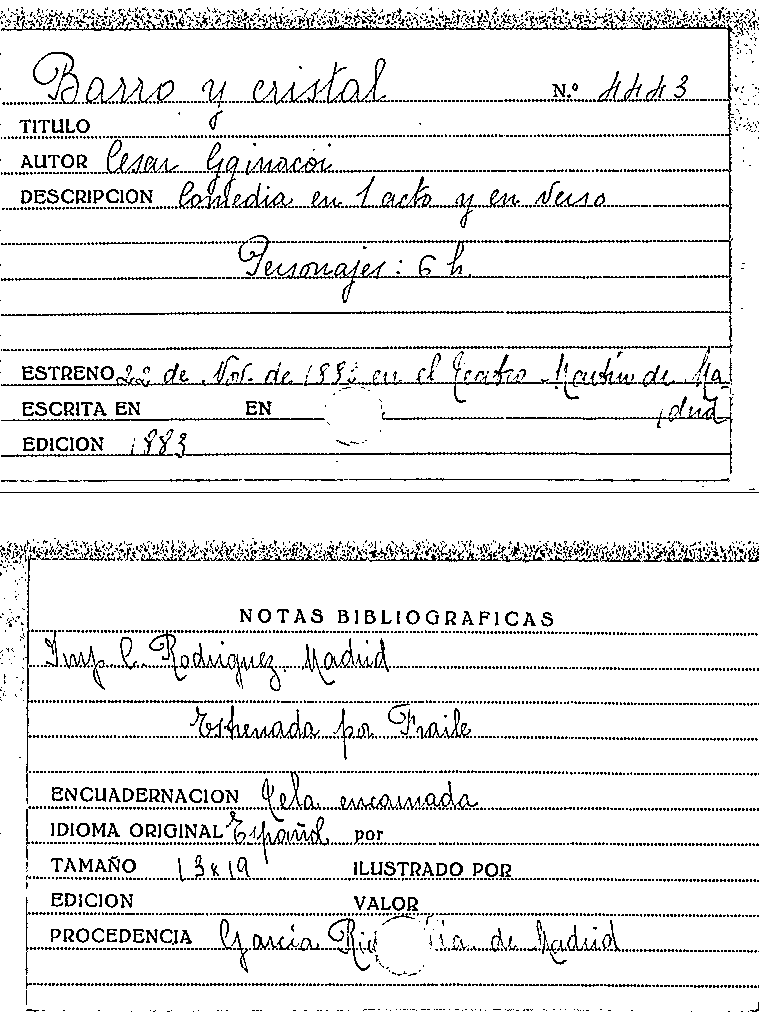 Barro y cristal N.º 4443
TITULO
AUTOR Cesar
DESCRIPCION Comedia en 1 acto y en verso
Personajes: 6 h.
ESTRENO 22 de Nov. de en el Teatro Martín de Ma-
ESCRITA EN EN drid
EDICION 1883
NOTAS BIBLIOGRAFICAS
Imp C. Rodriguez. Madrid
Estrenada por Fraile
ENCUADERNACION Tela encarnada
IDIOMA ORIGINAL Español por
TAMAÑO 13x19 ILUSTRADO POR
EDICION VALOR
PROCEDENCIA García de Madrid